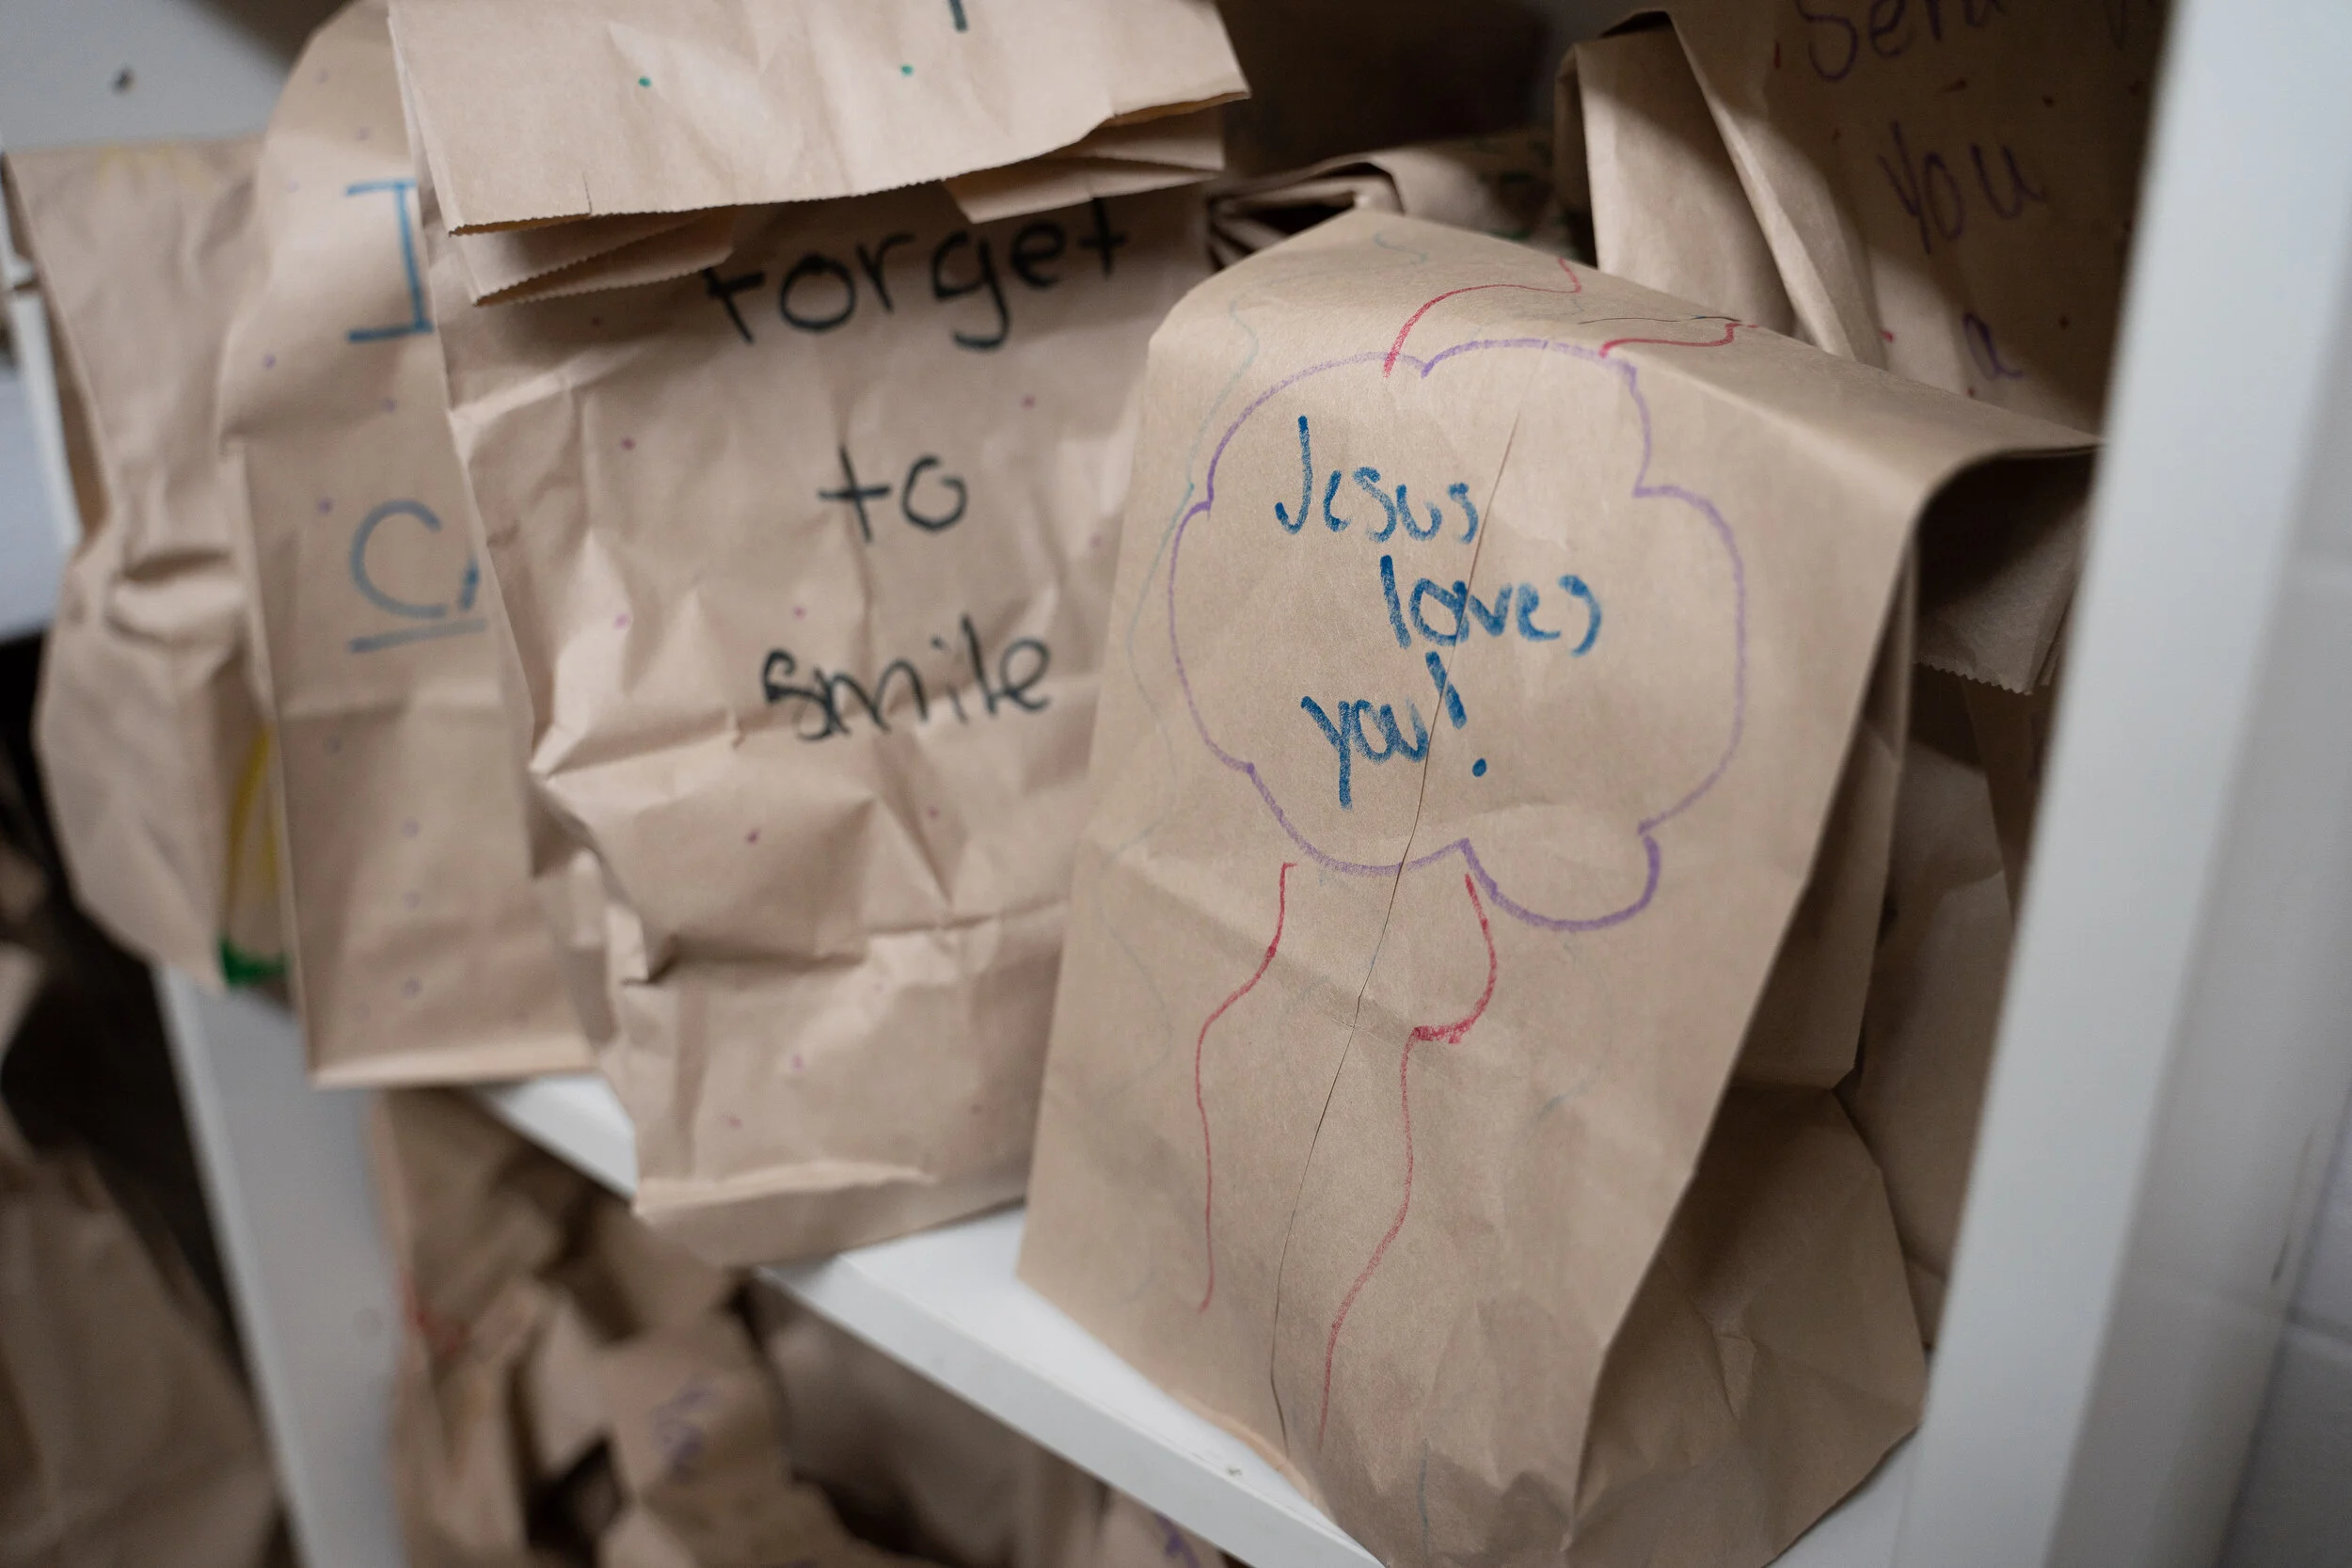 I
forget
to
smile
Jesus
loves
you!
Send
you
a